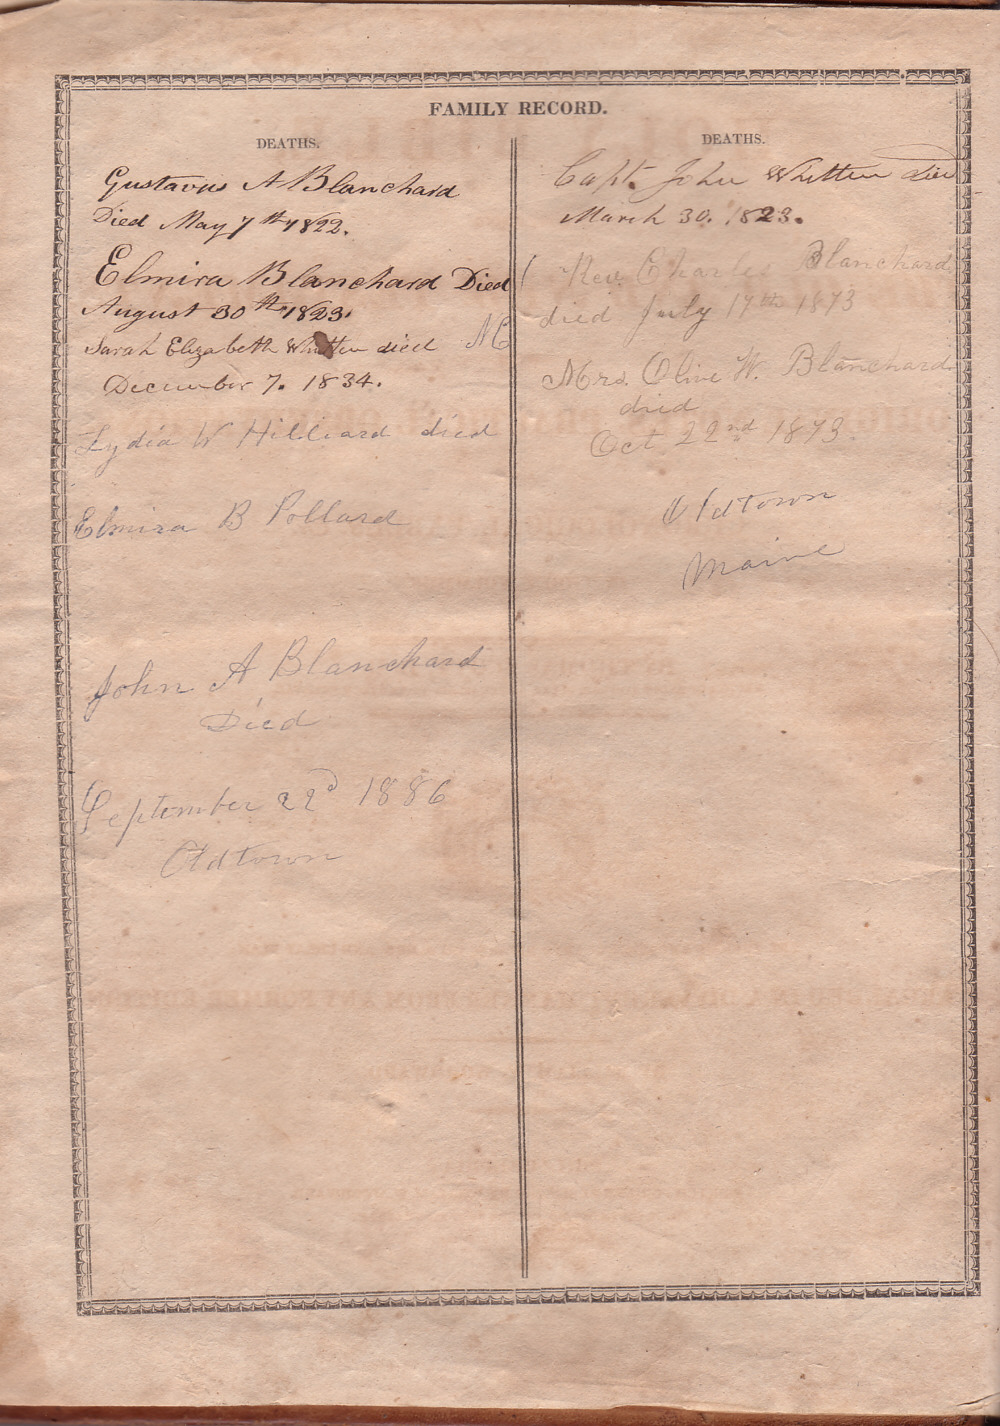 FAMILY RECORD.
DEATHS.
Gustavus A Blanchard
Died May 7th 1822.
Elmira Blanchard Died
August 30th 1823.
Sarah Elizabeth Whitten died
December 7. 1834.
Lydia W Hilliard died
Elmira B Pollard
John A Blanchard
Died
September 22d 1886
Oldtown
DEATHS.
Capt. John Whitten died
March 30. 1823.
Rev. Charles Blanchard
died July 17th 1873
Mrs. Olive W. Blanchard
died
Oct 22nd 1873.
Oldtown
Maine